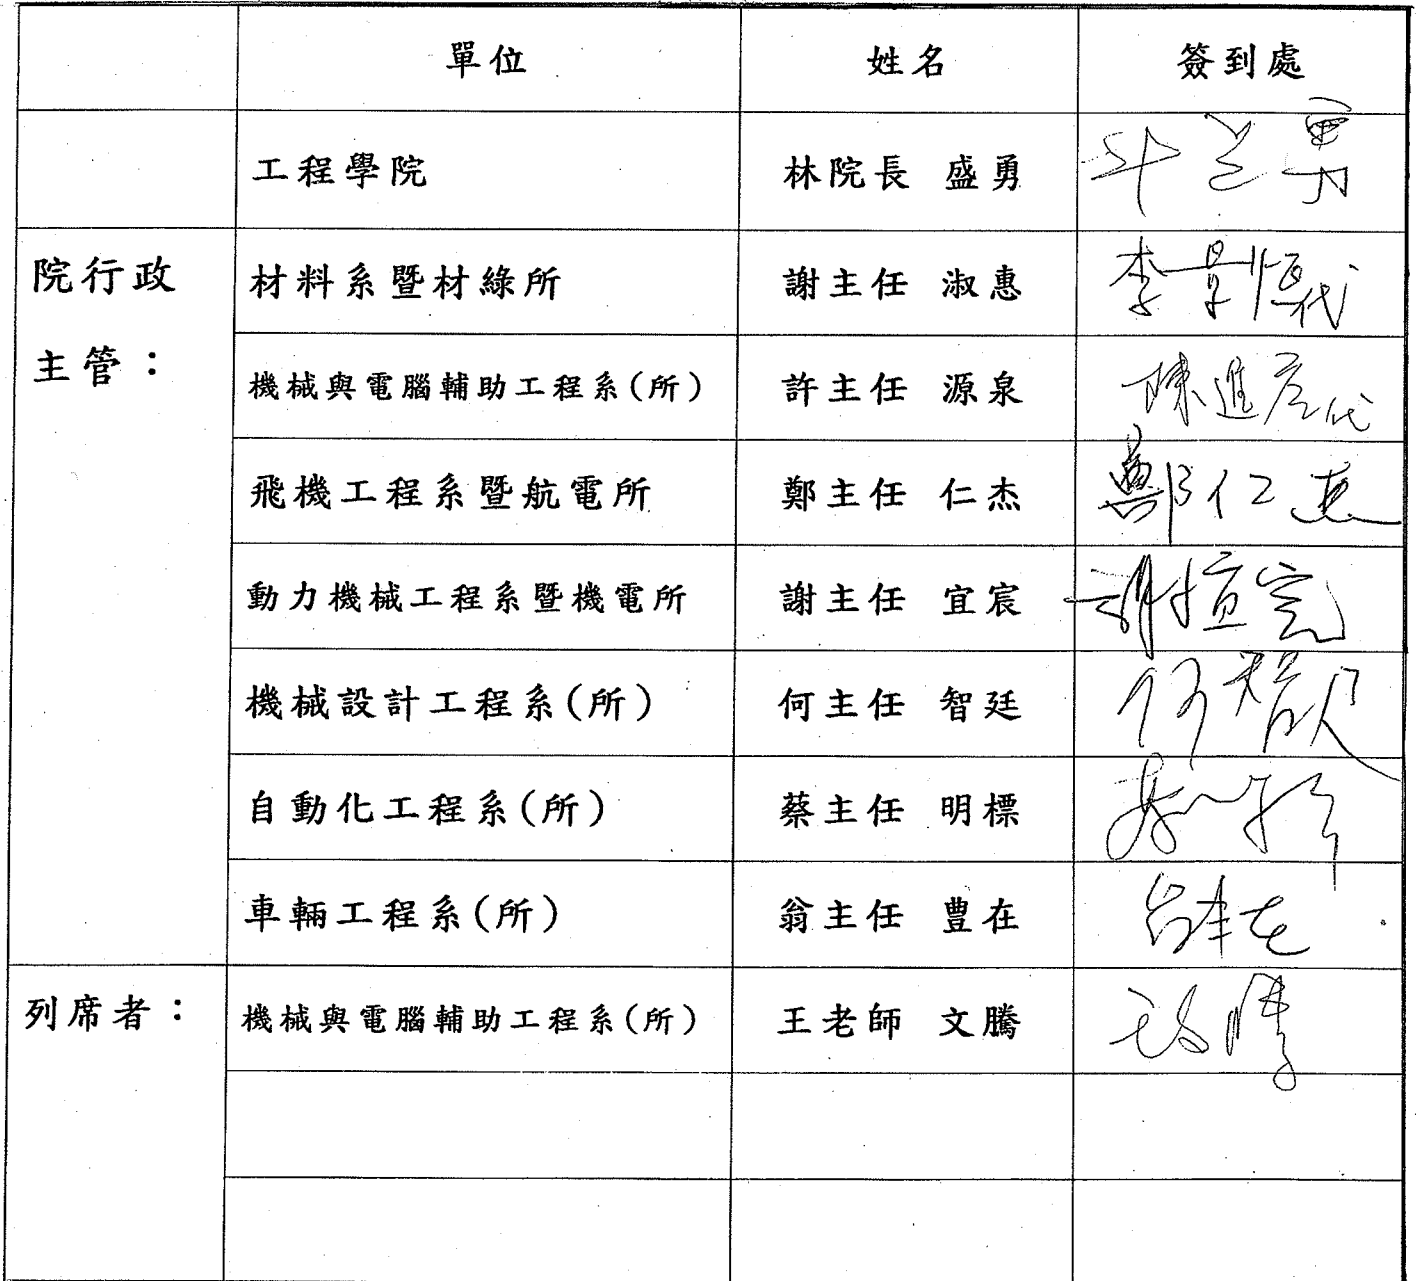 單位 姓名 簽到處
工程學院 林院長 盛勇
院行政 材料系暨材綠所 謝主任 淑惠 李景恒代
主管： 機械與電腦輔助工程系(所) 許主任 源泉 陳進彥代
飛機工程系暨航電所 鄭主任 仁杰 鄭仁杰
動力機械工程系暨機電所 謝主任 宜宸
機械設計工程系(所) 何主任 智廷
自動化工程系(所) 蔡主任 明標
車輛工程系(所) 翁主任 豊在
列席者： 機械與電腦輔助工程系(所) 王老師 文騰